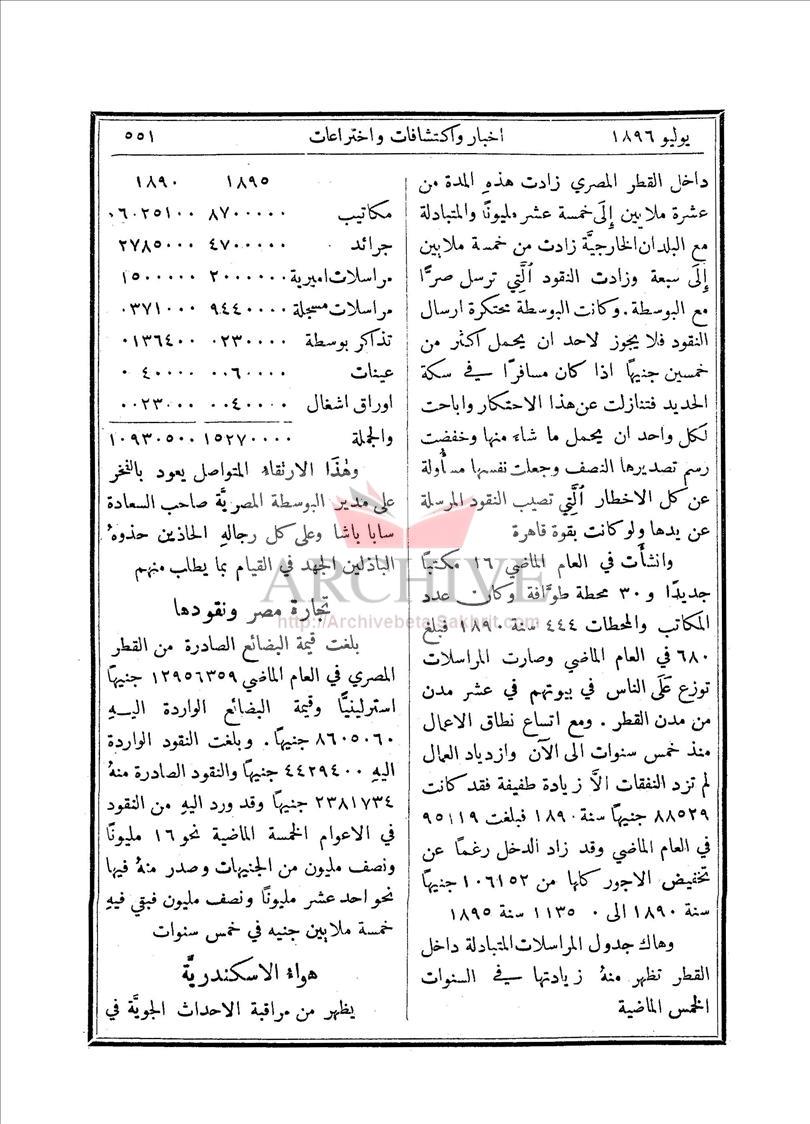 يوليو ١٨٩٦ اخبار واكتشافات واختراعات ٥٥١
داخل القطر المصري زادت هذهِ المدة من
عشرة ملايين إِلَى خمسة عشر مليونًا والمتبادلة
مع البلدان الخارجيَّة زادت من خمسة ملايين
إِلَى سبعة وزادت النقود ٱلَّتِي ترسل صرًّا
مع البوسطة. وكانت البوسطة محتكرة ارسال
النقود فلا يجوز لاحد ان يحمل اكثر من
خمسين جنيهًا اذا كان مسافرًا في سكة
الحديد فتنازلت عن هذا الاحتكار واباحت
لكل واحد ان يحمل ما شاءَ منها وخفضت
رسم تصديرها النصف وجعلت نفسها مسأُولة
عن كل الاخطار ٱلَّتِي تصيب النقود المرسلة
عن يدها ولو كانت بقوة قاهرة
وانشأَت في العام الماضي ١٦ مكتبًا
جديدًا و ٣٠ محطة طوَّافة وكان عدد
المكاتب والمحطات ٤٤٤ سنة ١٨٩٠ فبلغ
٦٨٠ في العام الماضي وصارت المراسلات
توزع عَلَى الناس في بيوتهم في عشر مدن
من مدن القطر. ومع اتساع نطاق الاعمال
منذ خمس سنوات الى الآن وازدياد العمال
لم تزد النفقات الاَّ زيادة طفيفة فقد كانت
٨٨٥٢٩ جنيهًا سنة ١٨٩٠ فبلغت ٩٥١١٩
في العام الماضي وقد زاد الدخل رغمًا عن
تخفيض الاجور كلها من ١٠٦١٥٢ جنيهًا
سنة ١٨٩٠ الى ١١٣٥٠٠ سنة ١٨٩٥
وهاك جدول المراسلات المتبادلة داخل
القطر تظهر منهُ زيادتها في السنوات
الخمس الماضية
١٨٩٥ ١٨٩٠
مكاتيب ٨٧٠٠٠٠٠ ٠٦٠٢٥١٠٠
جرائد ٤٧٠٠٠٠٠ ٢٧٨٥٠٠٠
مراسلات اميرية ٢٠٠٠٠٠٠ ١٥٠٠٠٠٠
مراسلات مسجلة ٩٤٤٠٠٠٠ ٠٣٧١٠٠٠
تذاكر بوسطة ٠٢٣٠٠٠٠ ٠١٣٦٤٠٠
عينات ٠٠٦٠٠٠٠ ٠٤٠٠٠٠
اوراق اشغال ٠٠٤٠٠٠٠ ٠٠٢٣٠٠٠
والجملة ١٥٢٧٠٠٠٠ ١٠٩٣٠٥٠٠
وهٰذا الارتقاءُ المتواصل يعود بالفخر
على مدير البوسطة المصريَّة صاحب السعادة
سابا باشا وعلى كل رجالهِ الحاذين حذوهُ
الباذلين الجهد في القيام بما يطلب منهم
تجارة مصر ونقودها
بلغت قيمة البضائع الصادرة من القطر
المصري في العام الماضي ١٢٩٥٦٣٥٩ جنيهًا
استرلينيًّا وقيمة البضائع الواردة اليهِ
٨٦٠٥٠٦٠ جنيهًا. وبلغت النقود الواردة
اليهِ ٤٤٢٩٤٠٠ جنيهًا والنقود الصادرة منهُ
٢٣٨١٧٣٤ جنيهًا وقد ورد اليهِ من النقود
في الاعوام الخمسة الماضية نحو ١٦ مليونًا
ونصف مليون من الجنيهات وصدر منهُ فيها
نحو احد عشر مليونًا ونصف مليون فبقي فيهِ
خمسة ملايين جنيه في خمس سنوات
هواء الاسكندريَّة
يظهر من مراقبة الاحداث الجويَّة في
ARCHIVE
http://Archivebeta.Sakhrit.com